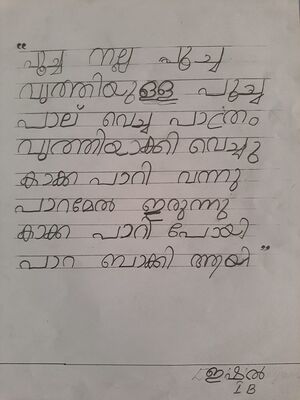 "പൂച്ച നല്ല പൂച്ച
വൃത്തിയുള്ള പൂച്ച
പാല് വെച്ച പാത്രം
വൃത്തിയാക്കി വെച്ചു
കാക്ക പാറി വന്നു
പാറമേൽ ഇരുന്നു
കാക്ക പാറി പോയി
പാറ ബാക്കി ആയി"
ഇഷൽ
1 B